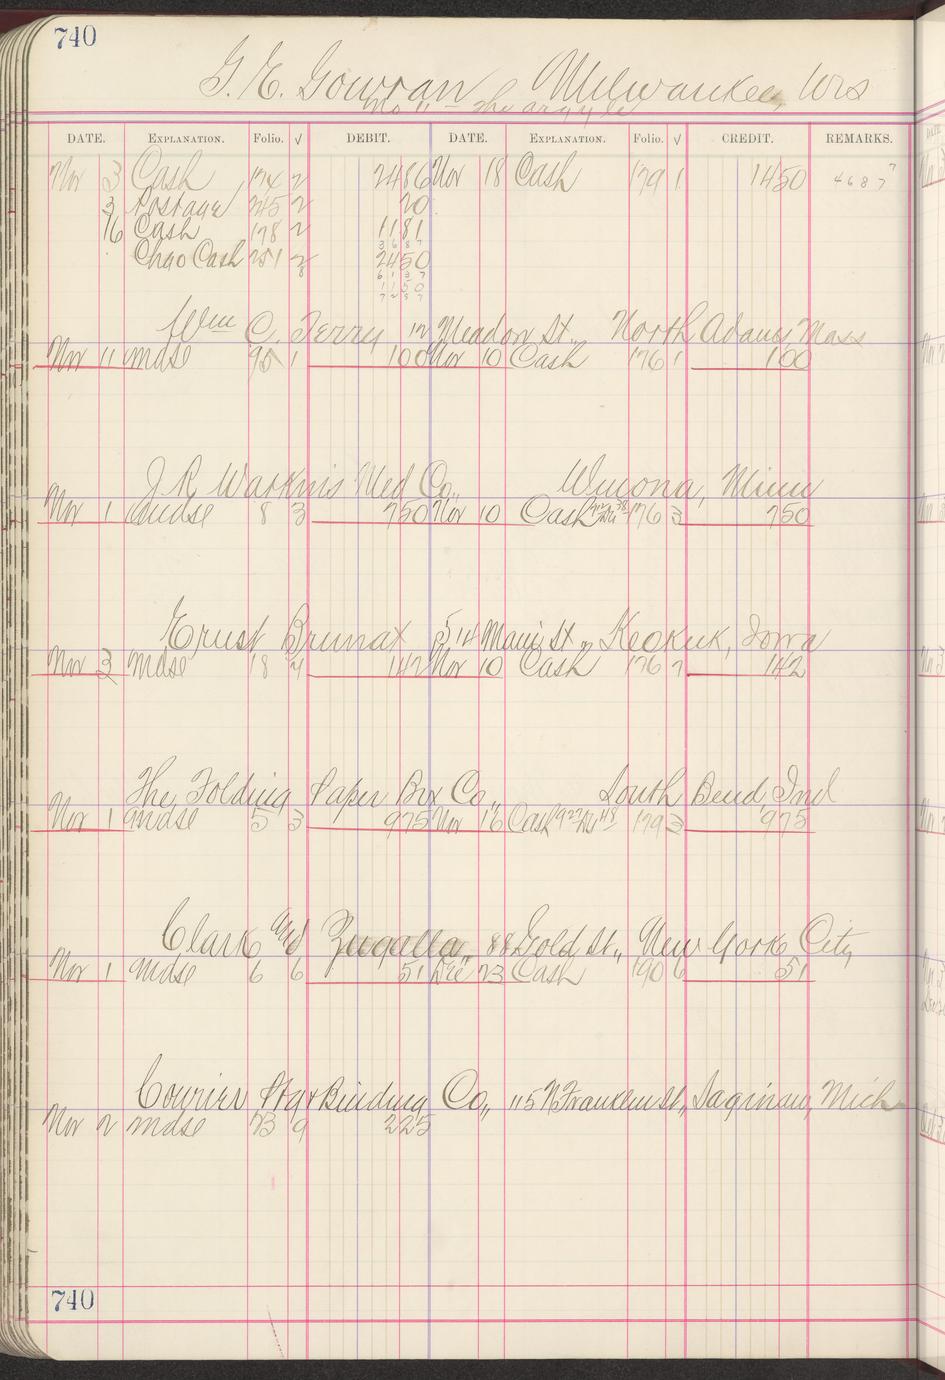 740
G. E. Gowran Milwaukee, Wis
No 11 The argyle
DATE. EXPLANATION. Folio. √ DEBIT. DATE. EXPLANATION. Folio. √ CREDIT. REMARKS.
Nov 3 Cash 174 2 2486 Nov 18 Cash 179 1 1450 4687
3 Postage 245 2 20
16 Cash 178 2 1181
3687
Chgo Cash 251 2 2450
6137
1150
7287
Wm C. Terry 12 Meadow St. North Adams, Mass
Nov 11 mdse 95 1 100 Nov 10 Cash 176 1 100
J. R. Watkins Med Co., Winona, Minn
Nov 1 mdse 8 3 750 Nov 10 Cash 176 3 750
Ernst Brunat 514 Main St., Keokuk, Iowa
Nov 3 mdse 18 7 142 Nov 10 Cash 176 7 142
The Folding Paper Box Co., South Bend, Ind
Nov 1 mdse 5 3 975 Nov 16 Cash 179 3 975
Clark and Zugalla, 88 Gold St., New York City
Nov 1 mdse 6 6 51 Dec 23 Cash 190 6 51
Courier Ptg & Binding Co., 115 N. Franklin St., Saginaw, Mich
Nov 2 mdse 73 9 225
740